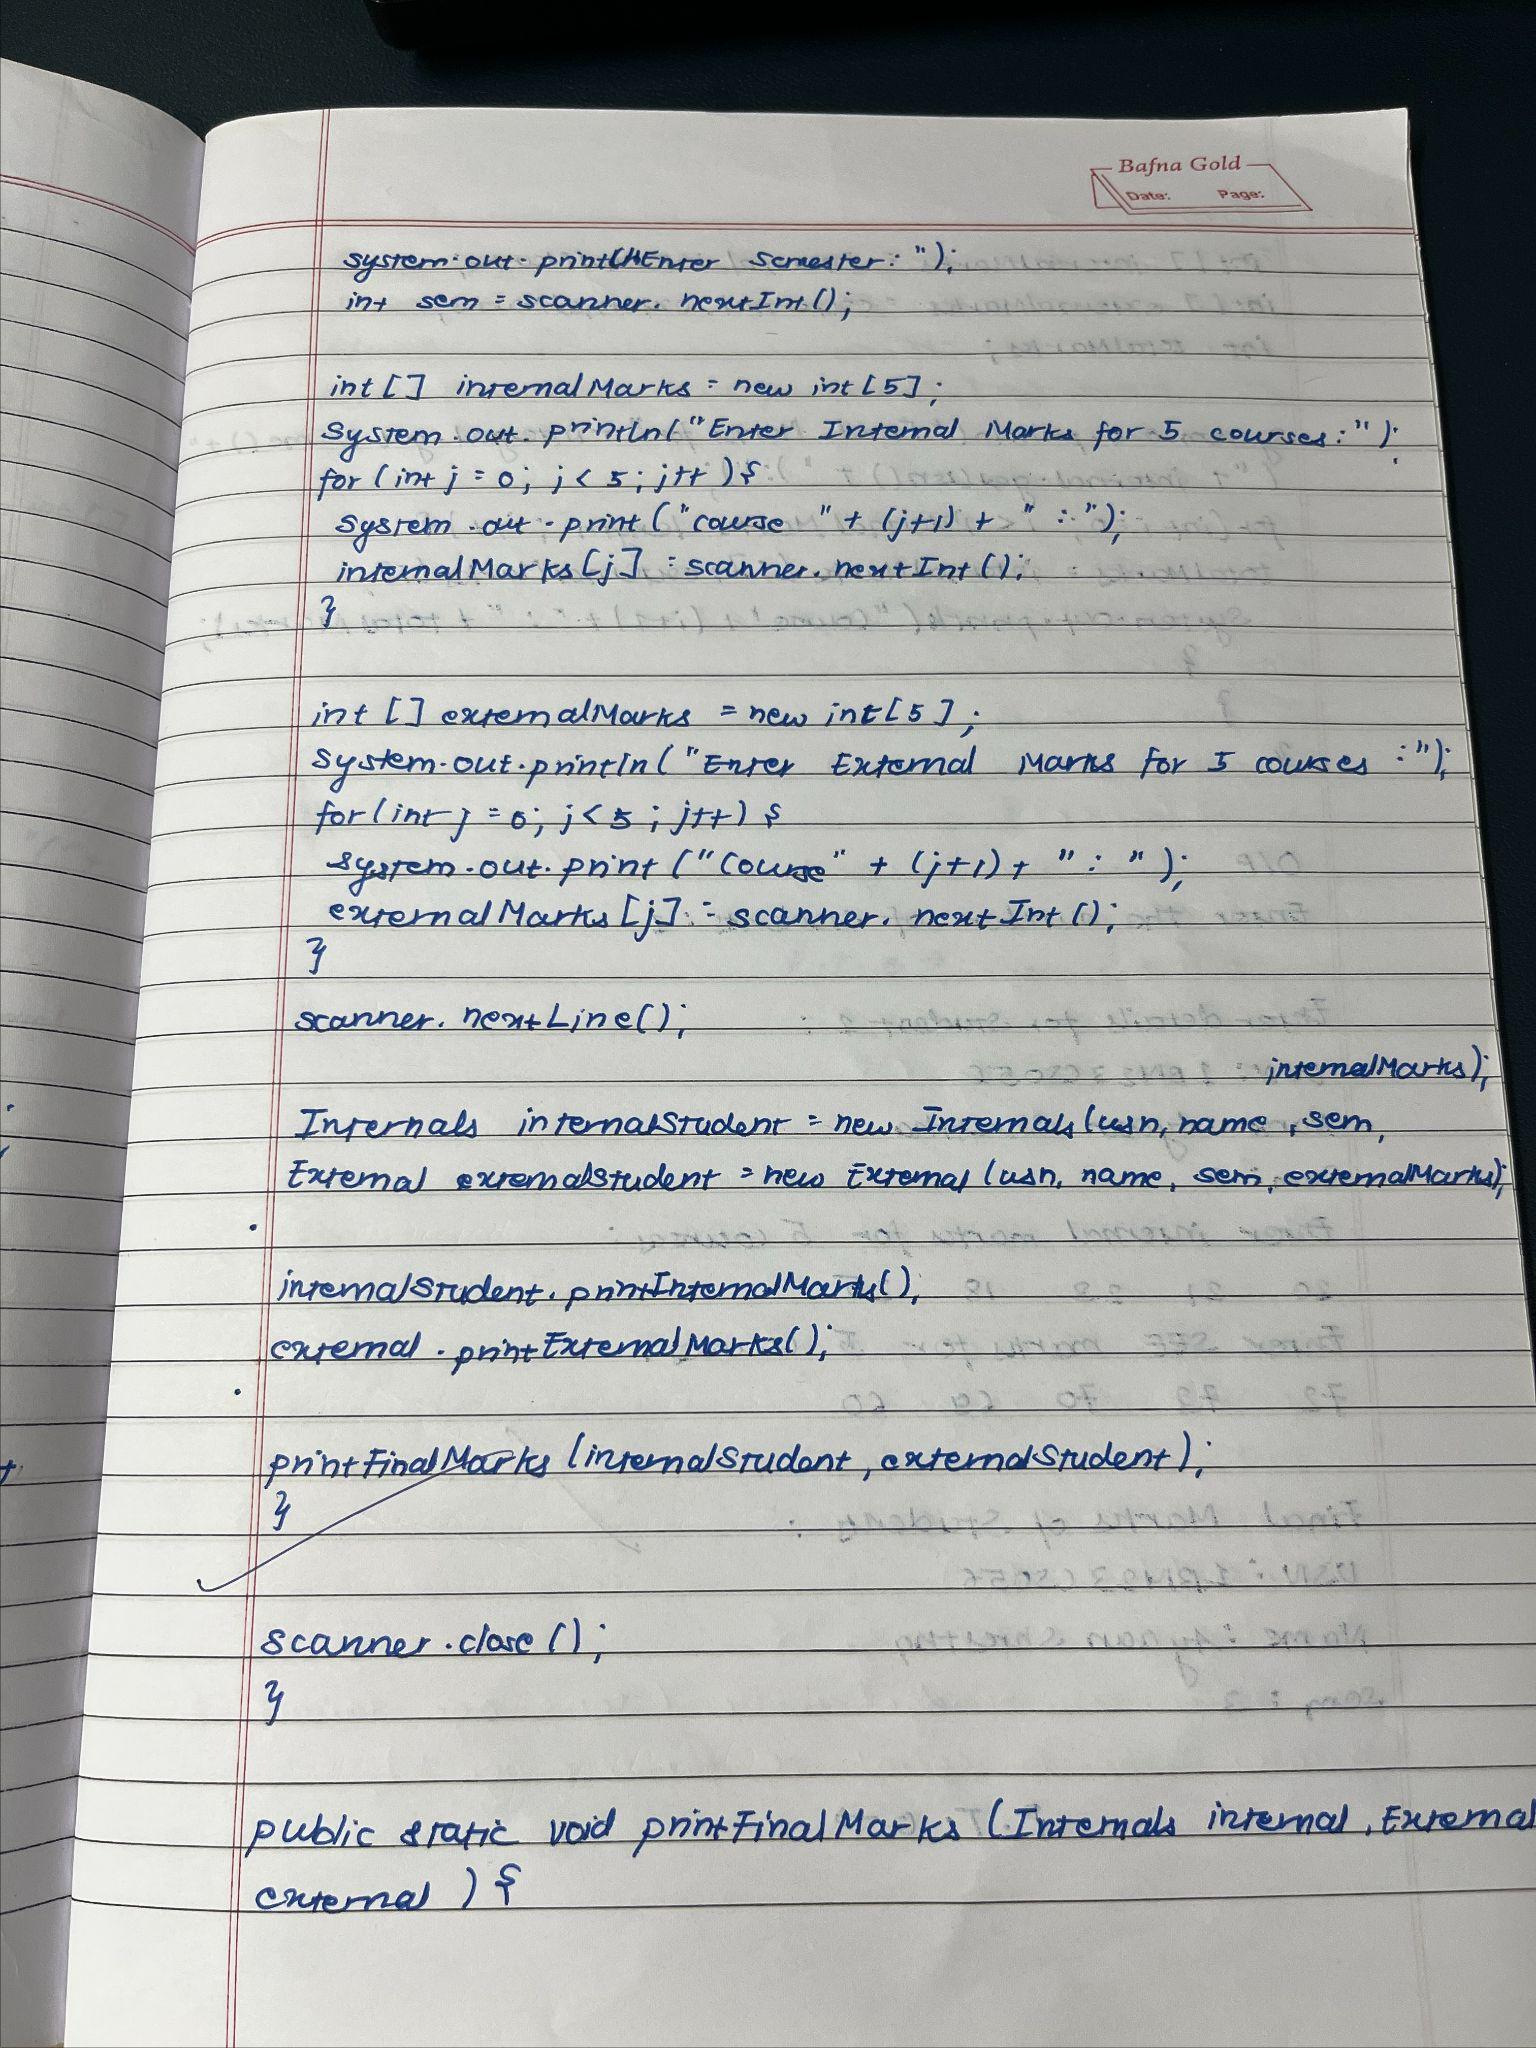 Bafna Gold
Date: Page:
system.out.print("Enter Semester: ");
int sem = scanner.nextInt();
int [] internalMarks = new int [5];
System.out.println("Enter Internal Marks for 5 courses:");
for (int j = 0; j < 5; j++) {
System.out.print ("course " + (j+1) + " : ");
internalMarks [j] = scanner.nextInt();
}
int [] externalMarks = new int [5];
System.out.println ("Enter External Marks for 5 courses :");
for (int j = 0; j < 5; j++) {
system.out.print ("Course" + (j+1) + " : ");
externalMarks [j] = scanner.nextInt();
}
scanner.nextLine();
internalMarks);
Internals internalStudent = new Internals (usn, name, sem,
External externalStudent = new External (usn, name, sem, externalMarks);
internalStudent.printInternalMarks();
external.printExternalMarks();
printFinalMarks (internalStudent, externalStudent);
}
scanner.close ();
}
public static void printFinalMarks (Internals internal, External
external ) {